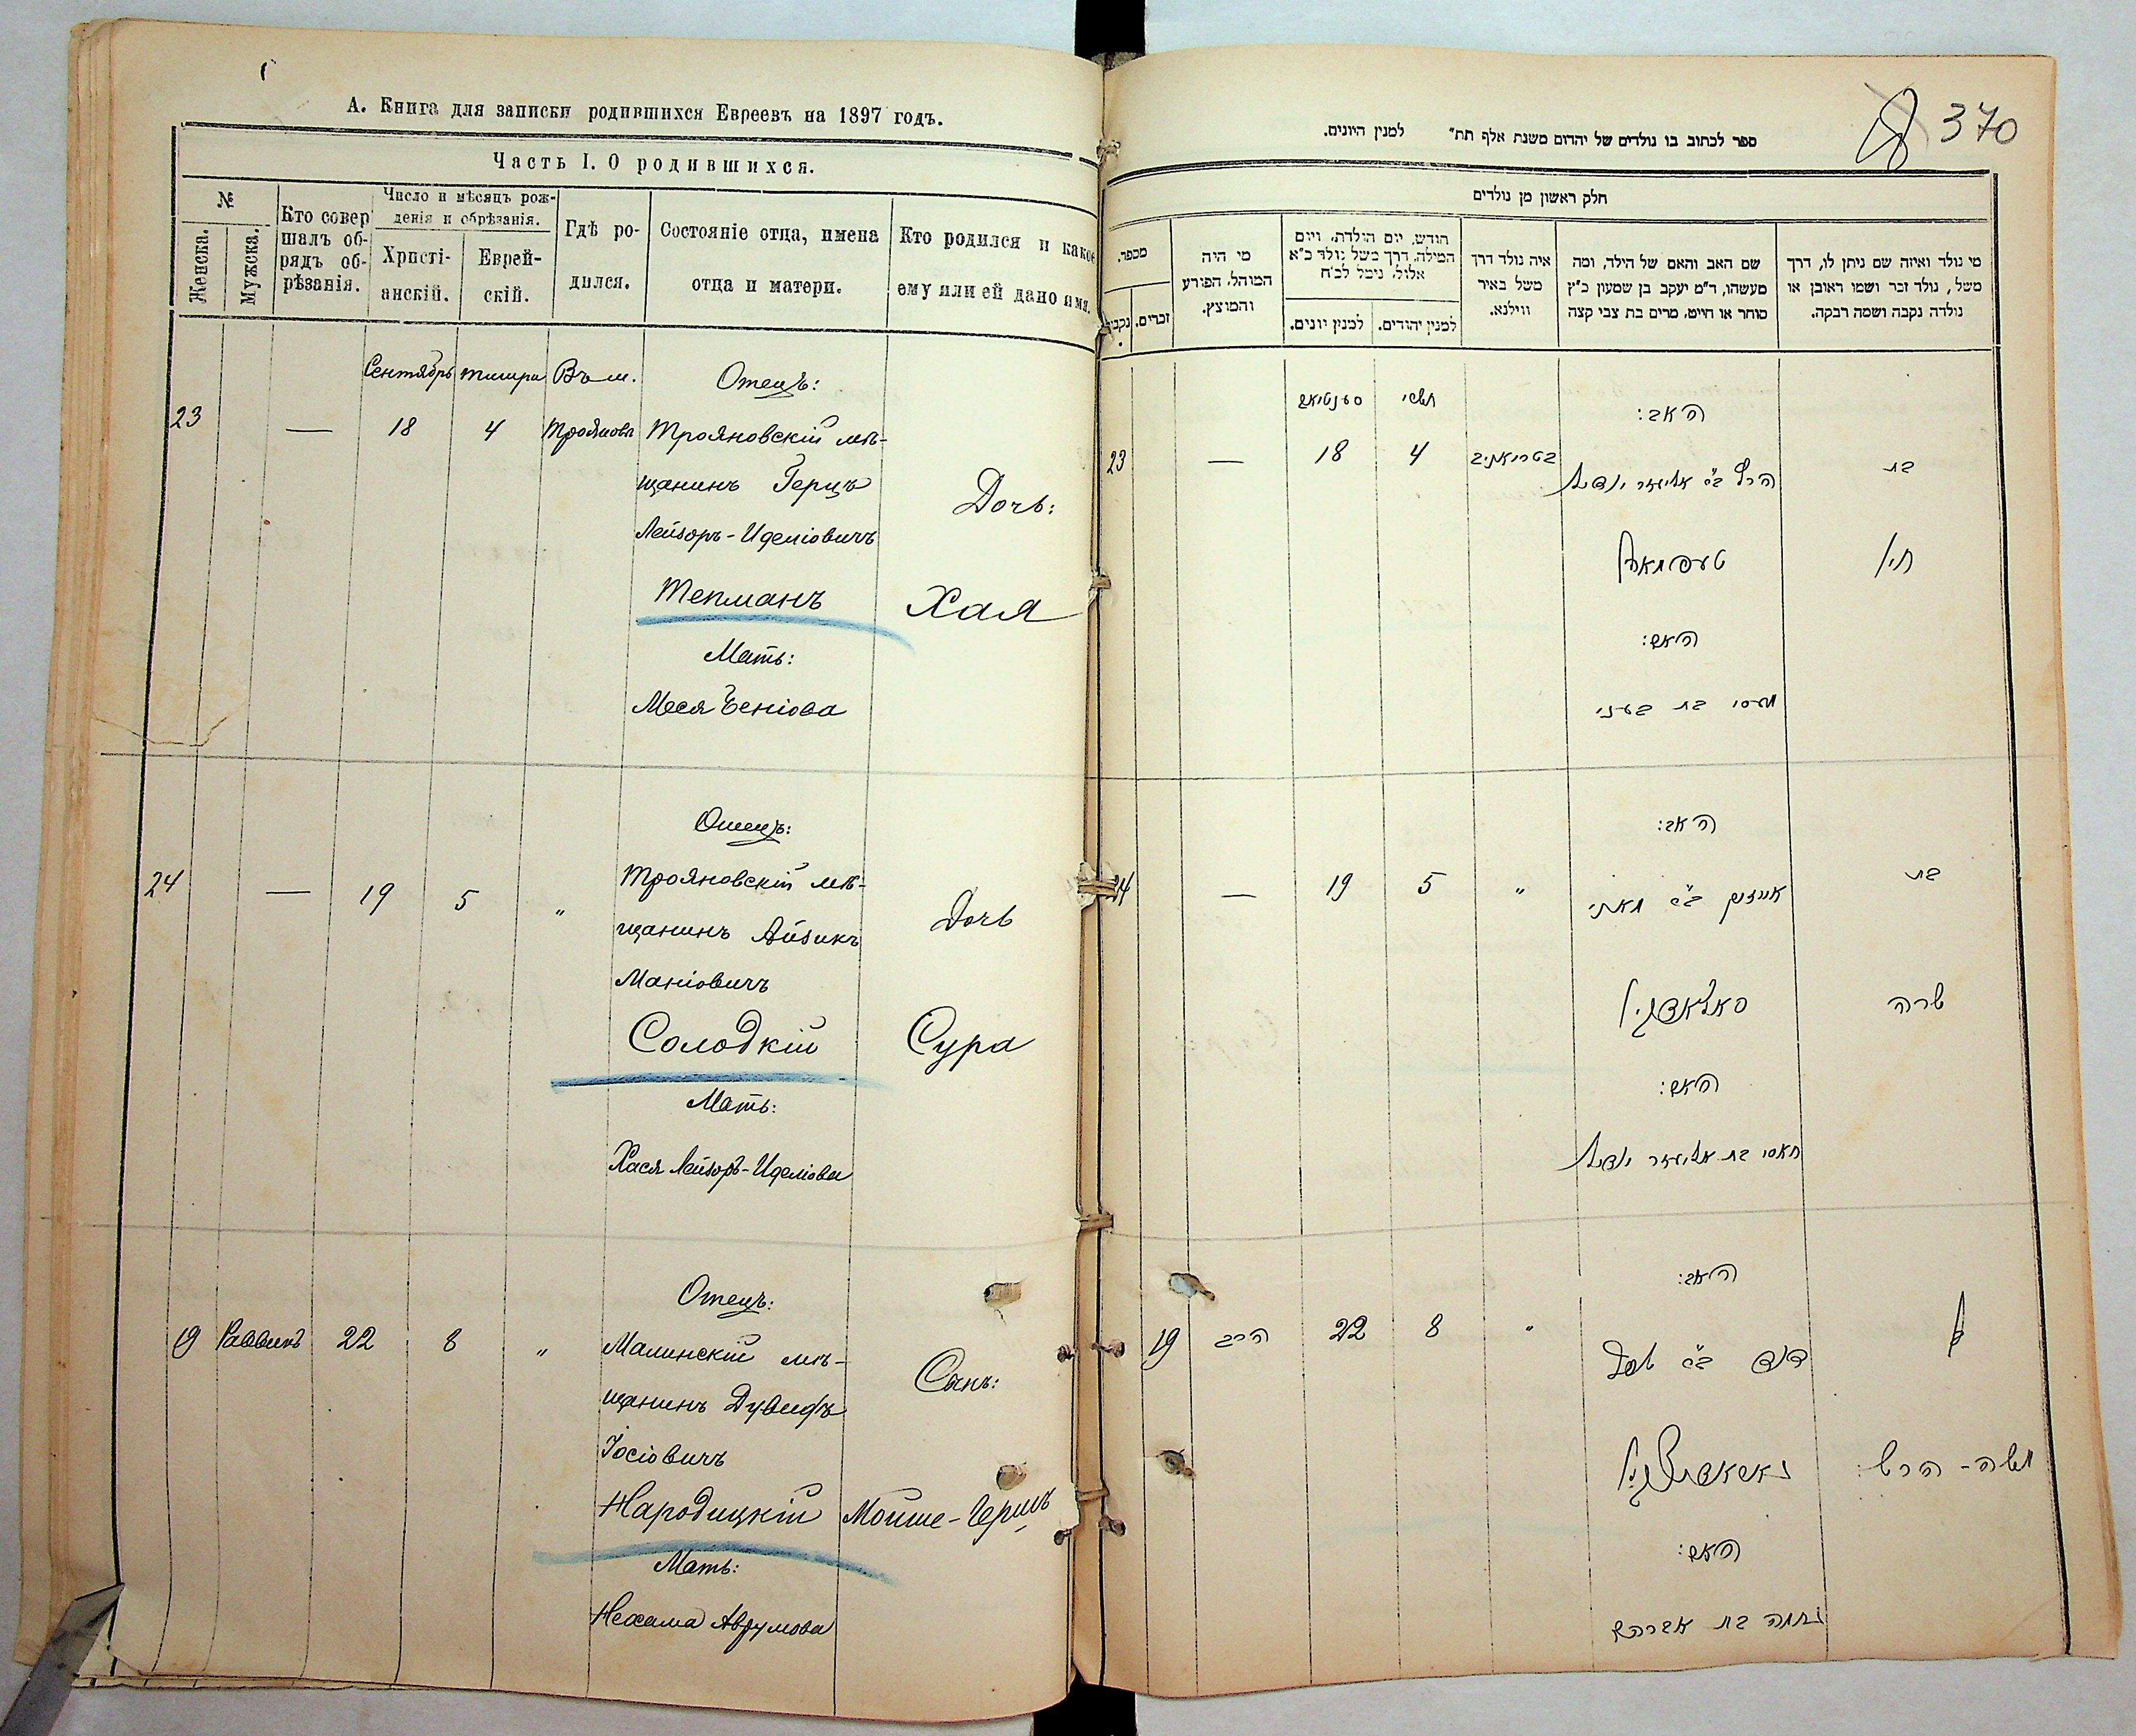 А. Книга для записки родившихся Евреевъ на 1897 годъ.
Часть I. О родившихся.
№
Женска.
Мужска.
Кто совер
шалъ об-
рядъ об-
рѣзанія.
Число и мѣсяцъ рож-
денія и обрѣзанія.
Христі-
анскій.
Еврей-
скій.
Гдѣ ро-
дился.
Состояніе отца, имена
отца и матери.
Кто родился и какое
ему или ей дано имя.
Сентябрь Тишри Въ м. Отецъ:
23 — 18 4 Трояновѣ Трояновскій мѣ-
щанинъ Герцъ
Дочь:
Лейзоръ-Иделіовичъ
Тепманъ Хая
Мать:
Меся Беніова
Отецъ:
24 — 19 5 „ Трояновскій мѣ-
щанинъ Айзикъ Дочь
Маніовичъ
Солодкій Сура
Мать:
Хася Лейзоръ-Иделіова
Отецъ:
19 Раввинъ 22 8 „ Малинскій мѣ-
щанинъ Дувидъ Сынъ:
Іосіовичъ
Народицкій Мойше-Герцъ
Мать:
Нехама Аврумова
370
ספר לכתוב בו נולדים של יהדום משנת אלף תת״ למנין היונים.
חלק ראשון מן נולדים
מספר.
נקבי
זכרים.
מי היה
המוהל, הפורע
והמוצץ.
חודש, יום הולדת, ויום
המילה, דרך משל נולד כ״א
אלול, נימל לכ״ח
למנין יונים.
למנין יהודים.
איה נולד דרך
משל באיר
ווילנא.
שם האב והאם של הילד, ומה
מעשהו, ד״מ יעקב בן שמעון כ״ץ
סוחר או חייט, מרים בת צבי קצה
מי נולד ואיזה שם ניתן לו, דרך
משל, נולד זכר ושמו ראובן או
נולדה נקבה ושמה רבקה.
תשרי
האב:
23 — 18 4
בת
הרץ ב״ר אליעזר יודיל
טעפמאן
חי׳
האם:
מעסי בת בעני
האב:
24 — 19 5 „
בת
אייזיק ב״ר מאני
סאלאדקי
שרה
האם:
חאסי בת אליעזר יודיל
האב:
19 הרב 22 8 „
בן
דוד ב״ר יוסף
משה - הרץ
האם:
נחמה בת אברהם